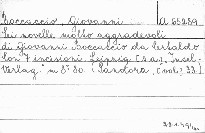 Boccaccio, Giovanni A 65259
Sei novelle molto aggradevoli
di Giovanni Boccaccio da Certaldo
con 7 incisioni. Leipzig (s.a.), Insel-
Verlag. m 8° 80. (Pandora,